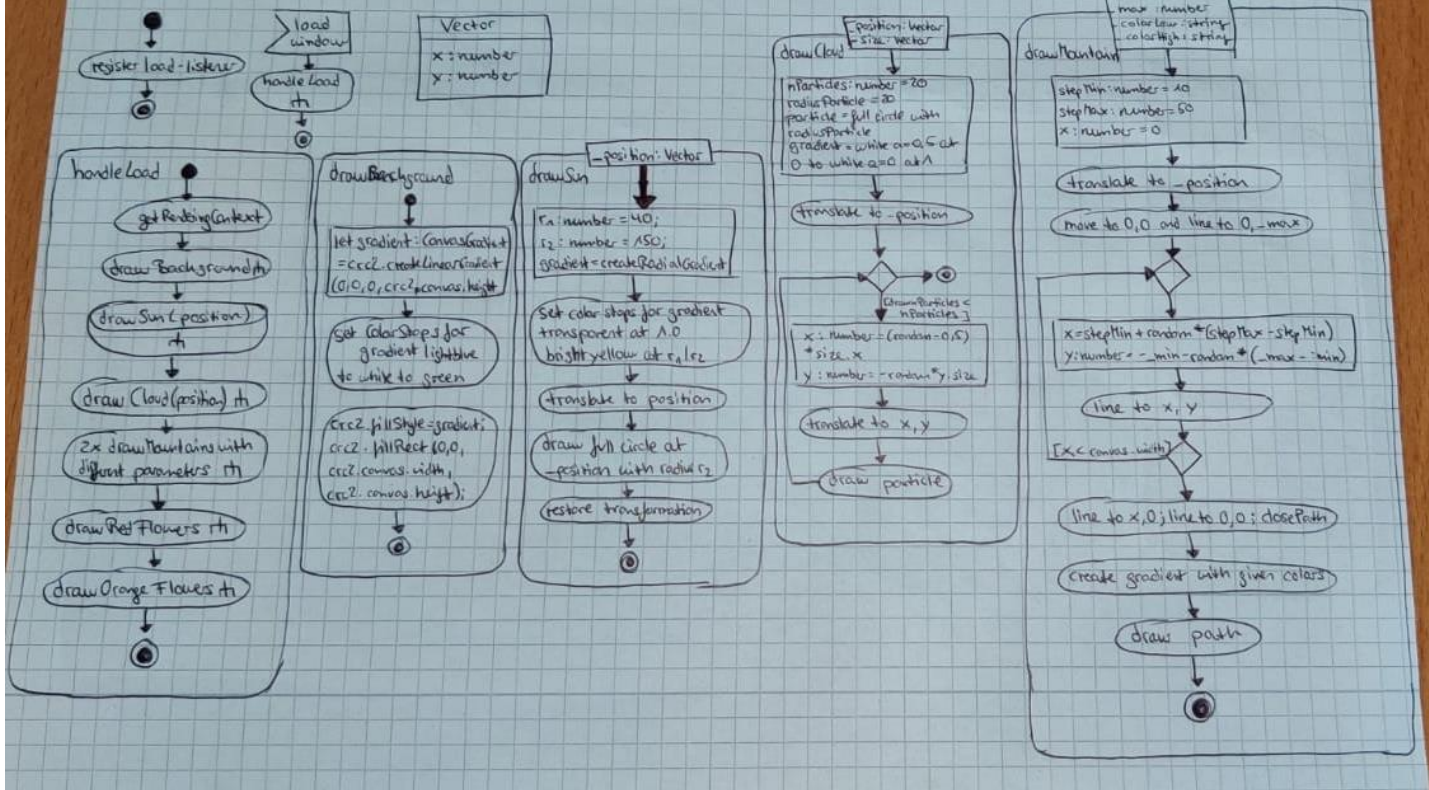 register load-listener
load
window
handleLoad
Vector
x : number
y : number
handleLoad
getRenderingContext
draw Background
draw Sun (position)
draw Cloud (position)
2x drawMountains with
different parameters
draw Red Flowers
draw Orange Flowers
drawBackground
let gradient : CanvasGradient
= crc2.createLinearGradient
(0,0,0, crc2.canvas.height
set ColorStops for
gradient lightblue
to white to green
crc2.fillStyle=gradient;
crc2.fillRect (0,0,
crc2.canvas.width,
crc2.canvas.height);
drawSun
_position : Vector
r1 : number = 40;
r2 : number = 150;
gradient = createRadialGradient
set color stops for gradient
transparent at 1.0
bright yellow at r1/r2
translate to position
draw full circle at
_position with radius r2
restore transformation
drawCloud
_position : Vector
_size : Vector
nParticles : number = 20
radiusParticle = 20
particle = full circle with
radiusParticle
gradient = white a=0,5 at
0 to white a=0 at 1
translate to _position
[drawnParticles <
nParticles]
x : number = (random - 0,5)
* size.x
y : number = - random * y.size
translate to x, y
draw particle
drawMountain
max : number
colorLow : string
colorHigh : string
stepMin : number = 10
stepMax : number = 50
x : number = 0
translate to _position
move to 0,0 and line to 0,_max
x = stepMin + random * (stepMax - stepMin)
y : number = - _min - random * (_max - _min)
line to x, y
[x < canvas.width]
line to x,0 ; line to 0,0 ; closePath
create gradient with given colors
draw path